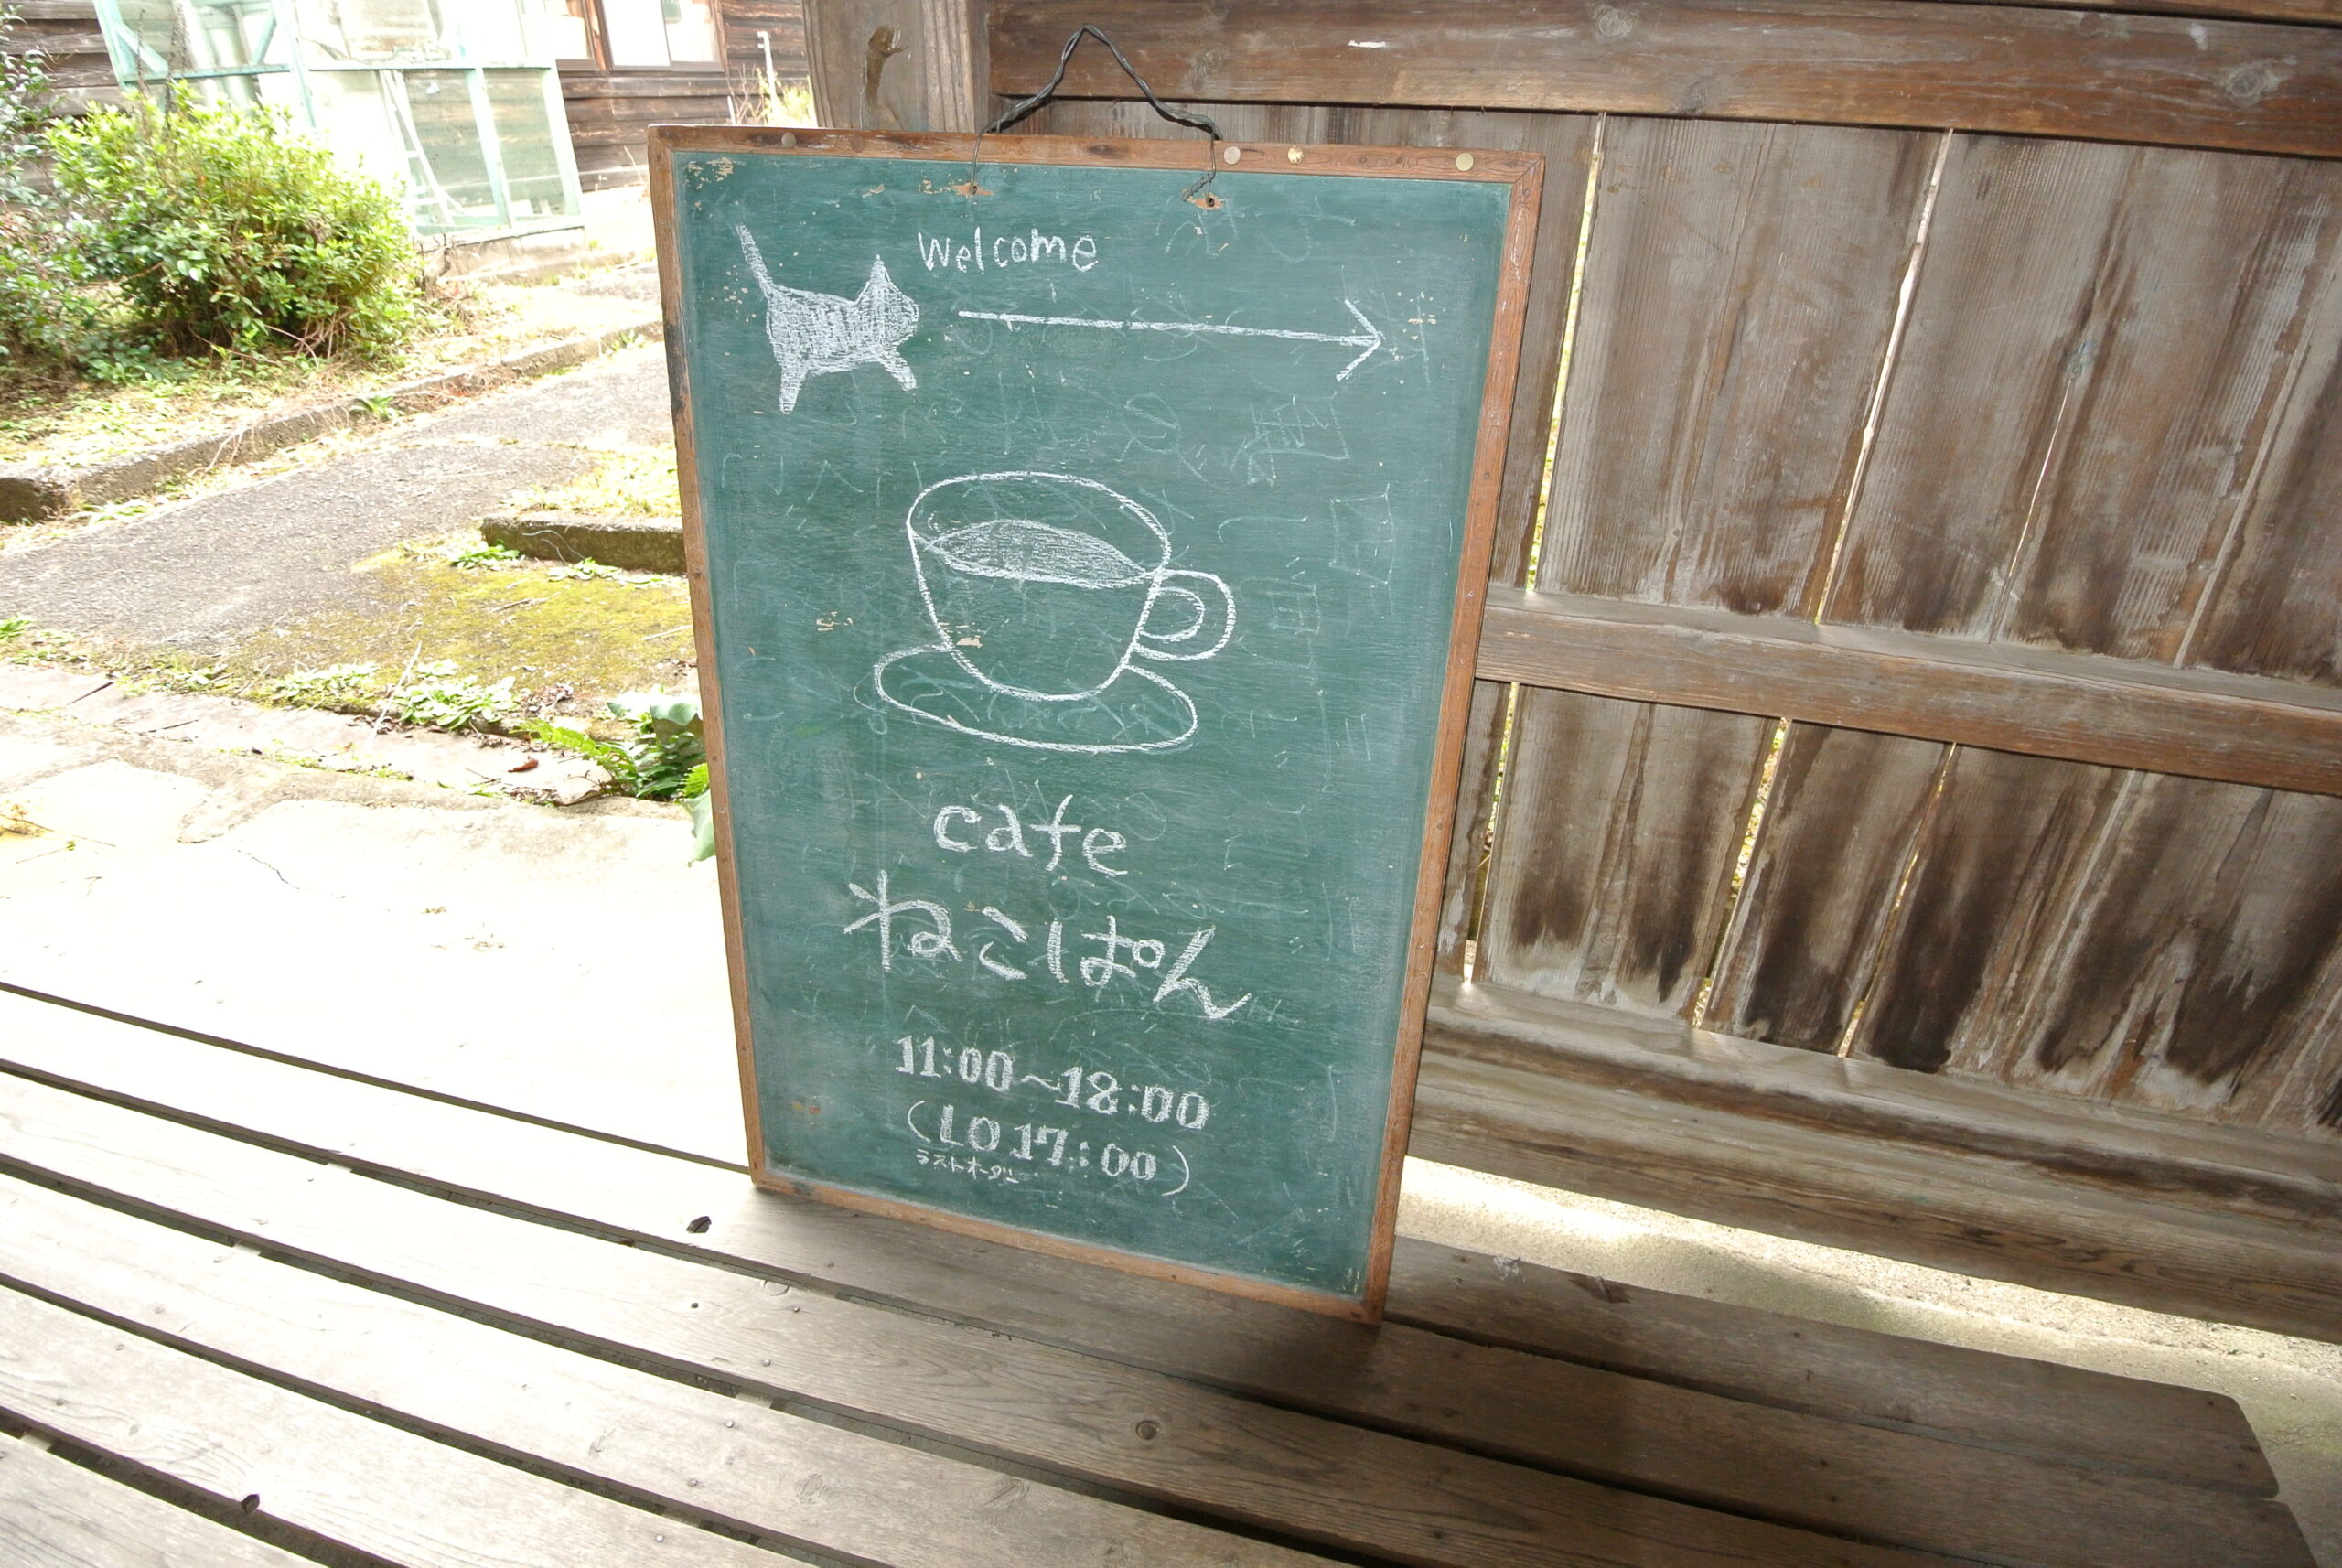 Welcome
cafe
ねこぱん
11:00～18:00
(LO 17:00)
ラストオーダー